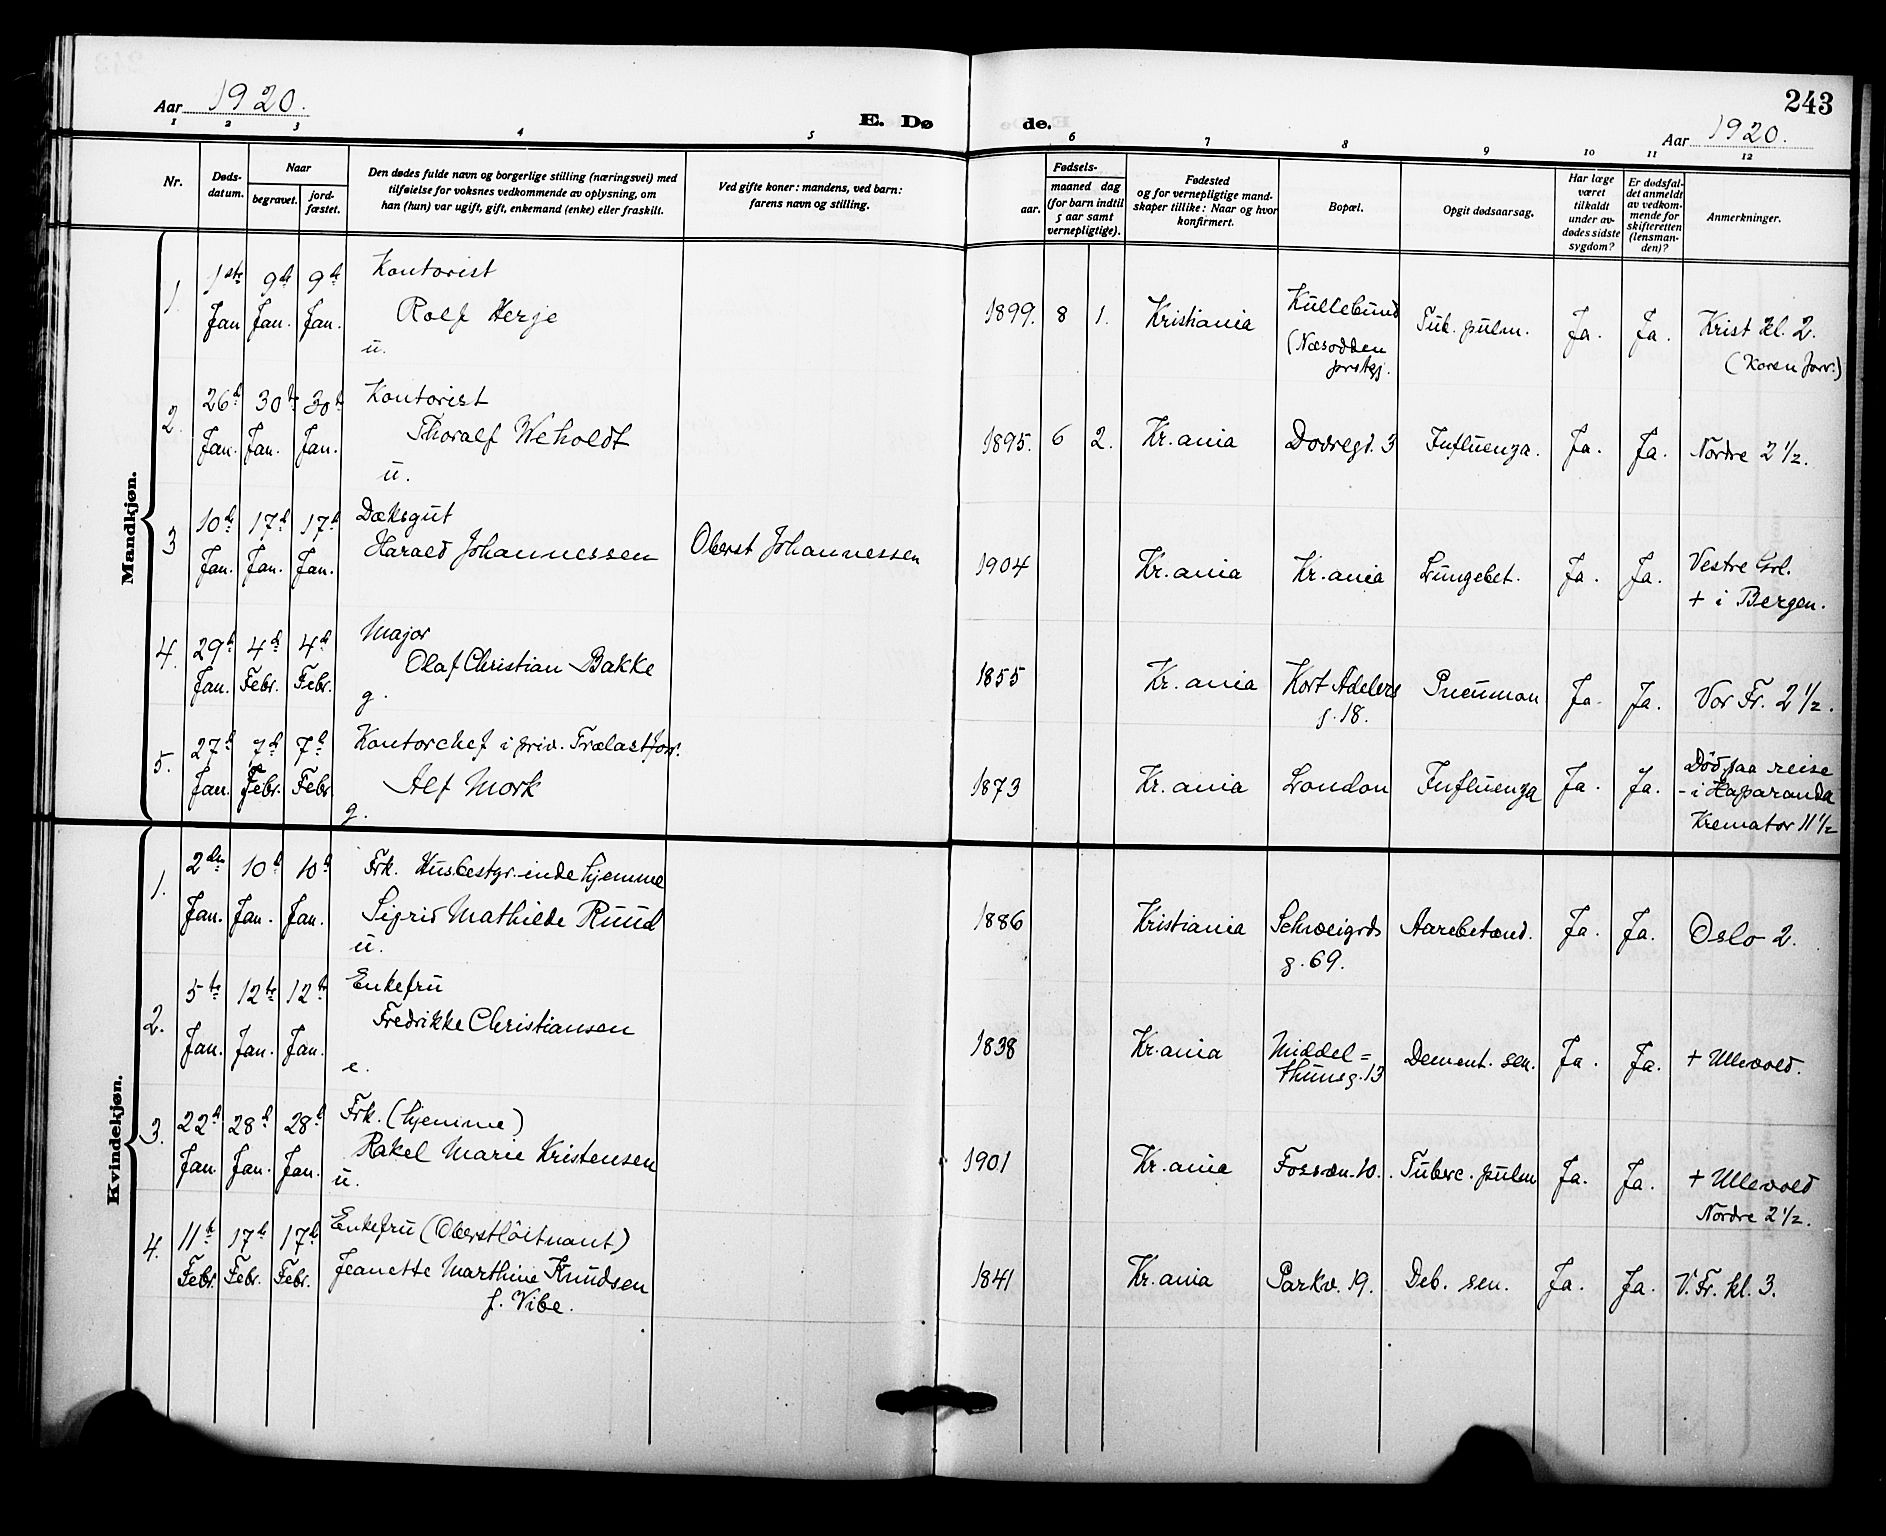 243
Aar 1920.
E. Dø
de.
Aar 1920.
1 2 3 4 5 6 7 8 9 10 11 12
Nr.
Døds-
datum.
Naar
begravet.
jord-
fæstet.
Den dødes fulde navn og borgerlige stilling (næringsvei) med
tilføielse for voksnes vedkommende av oplysning, om
han (hun) var ugift, gift, enkemand (enke) eller fraskilt.
Ved gifte koner: mandens, ved barn:
farens navn og stilling.
Fødsels-
aar.
maaned dag
(for barn indtil
5 aar samt
vernepligtige).
Fødested
og for vernepligtige mand-
skaper tillike: Naar og hvor
konfirmert.
Bopæl.
Opgit dødsaarsag.
Har læge
været
tilkaldt
under av-
dødes sidste
sygdom?
Er dødsfal-
det anmeldt
av vedkom-
mende for
skifteretten
(lensman-
den)?
Anmerkninger.
Mandkjøn.
1. 1ste Jan 9de Jan. 9de Jan.
Kontorist
Rolf Herje
u.
1899. 8 1. Kristiania
Kullebund
(Næsodden
prstgj.
Tub. pulm. Ja. Ja.
Krist kl. 2.
(Koren forr.)
2. 26d Jan. 30te Jan. 30te Jan.
Kontorist
Thoralf Weholdt
u.
1895. 6 2. Kr.ania Dovregt. 3 Influenza. Ja. Ja. Nordre 2 1/2.
3 10de Jan. 17d Jan. 17d Jan.
Dæksgut
Harald Johannessen
Oberst Johannessen
1904 Kr.ania Kr.ania Lungebet. Ja. Ja.
Vestre Grl.
+ i Bergen.
4. 29d Jan. 4d Febr. 4d Febr.
Major
Olaf Christian Bakke
g.
1855 Kr.ania
Kort Adelers
g. 18.
Pneumon Ja. Ja. Vor Fr. 2 1/2.
5. 27d Jan. 7d Febr. 7d Febr
Kontorchef i priv. Trælastforr.
Alf Mork
g.
1873 Kr.ania London Influenza Ja. Ja.
Död paa reise
- i Haparanda
Kremator 11 1/2
Kvindekjøn.
1. 2den Jan. 10d Jan. 10d Jan.
Frk. Husbestyr.inde hjemme
Sigrid Mathilde Ruud
u.
1886 Kristiania
Schweigrds
g. 69.
Aarebetænd. Ja. Ja. Oslo 2.
2. 5te Jan. 12te Jan. 12te Jan.
Enkefru
Fredrikke Christiansen
e.
1838 Kr.ania
Middel=
thunsg. 13
Dement. sen. Ja. Ja. + Ullevold.
3. 22d Jan 28d Jan. 28d Jan.
Frk. (hjemme)
Rakel Marie Kristensen
u.
1901 Kr.ania Fossvn. 10. Tuberc. pulm Ja. Ja.
+ Ullevold
Nordre 2 1/2.
4. 11te Febr. 17de Febr. 17d Febr.
Enkefru (Oberstlöitnant)
Jeanette Marthine Knudsen
f. Vibe.
1841 Kr.ania Parkv. 19. Deb. sen. Ja. Ja. V. Fr. kl. 3.